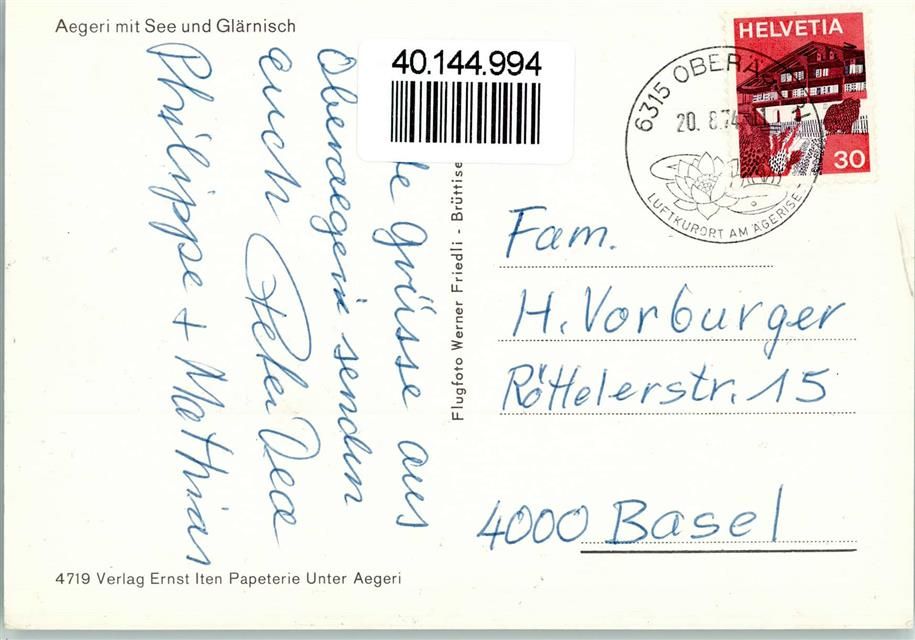 Aegeri mit See und Glärnisch
40.144.994
HELVETIA
30
6315 OBERÄ
20. 8.74
LUFTKURORT AM ÄGERISE
Grüsse aus
Oberaegeri senden
euch Peter Dea
Philippe + Mathias
Flugfoto Werner Friedli - Brüttise
Fam.
H. Vorburger
Röttelerstr. 15
4000 Basel
4719 Verlag Ernst Iten Papeterie Unter Aegeri